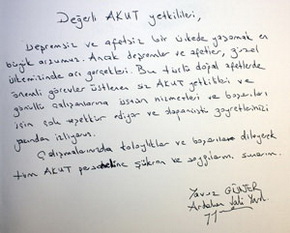 Değerli AKUT yetkilileri,
Depremsiz ve afetsiz bir ülkede yaşamak en
büyük arzumuz. Ancak depremler ve afetler, güzel
ülkemizinde acı gerçekleri. Bu türlü doğal afetlerde
önemli görevler üstlenen siz AKUT yetkilileri ve
gönüllü çalışanlarına üstün hizmetleri ve başarıları
için çok teşekkür ediyor ve
gayretlerinizi
yakından izliyoruz.
Çalışmalarınızda kolaylıklar ve başarılar dileyerek
tüm AKUT personeline şükran ve saygılarımı sunarım.
Yavuz
Ardahan Vali Yard.